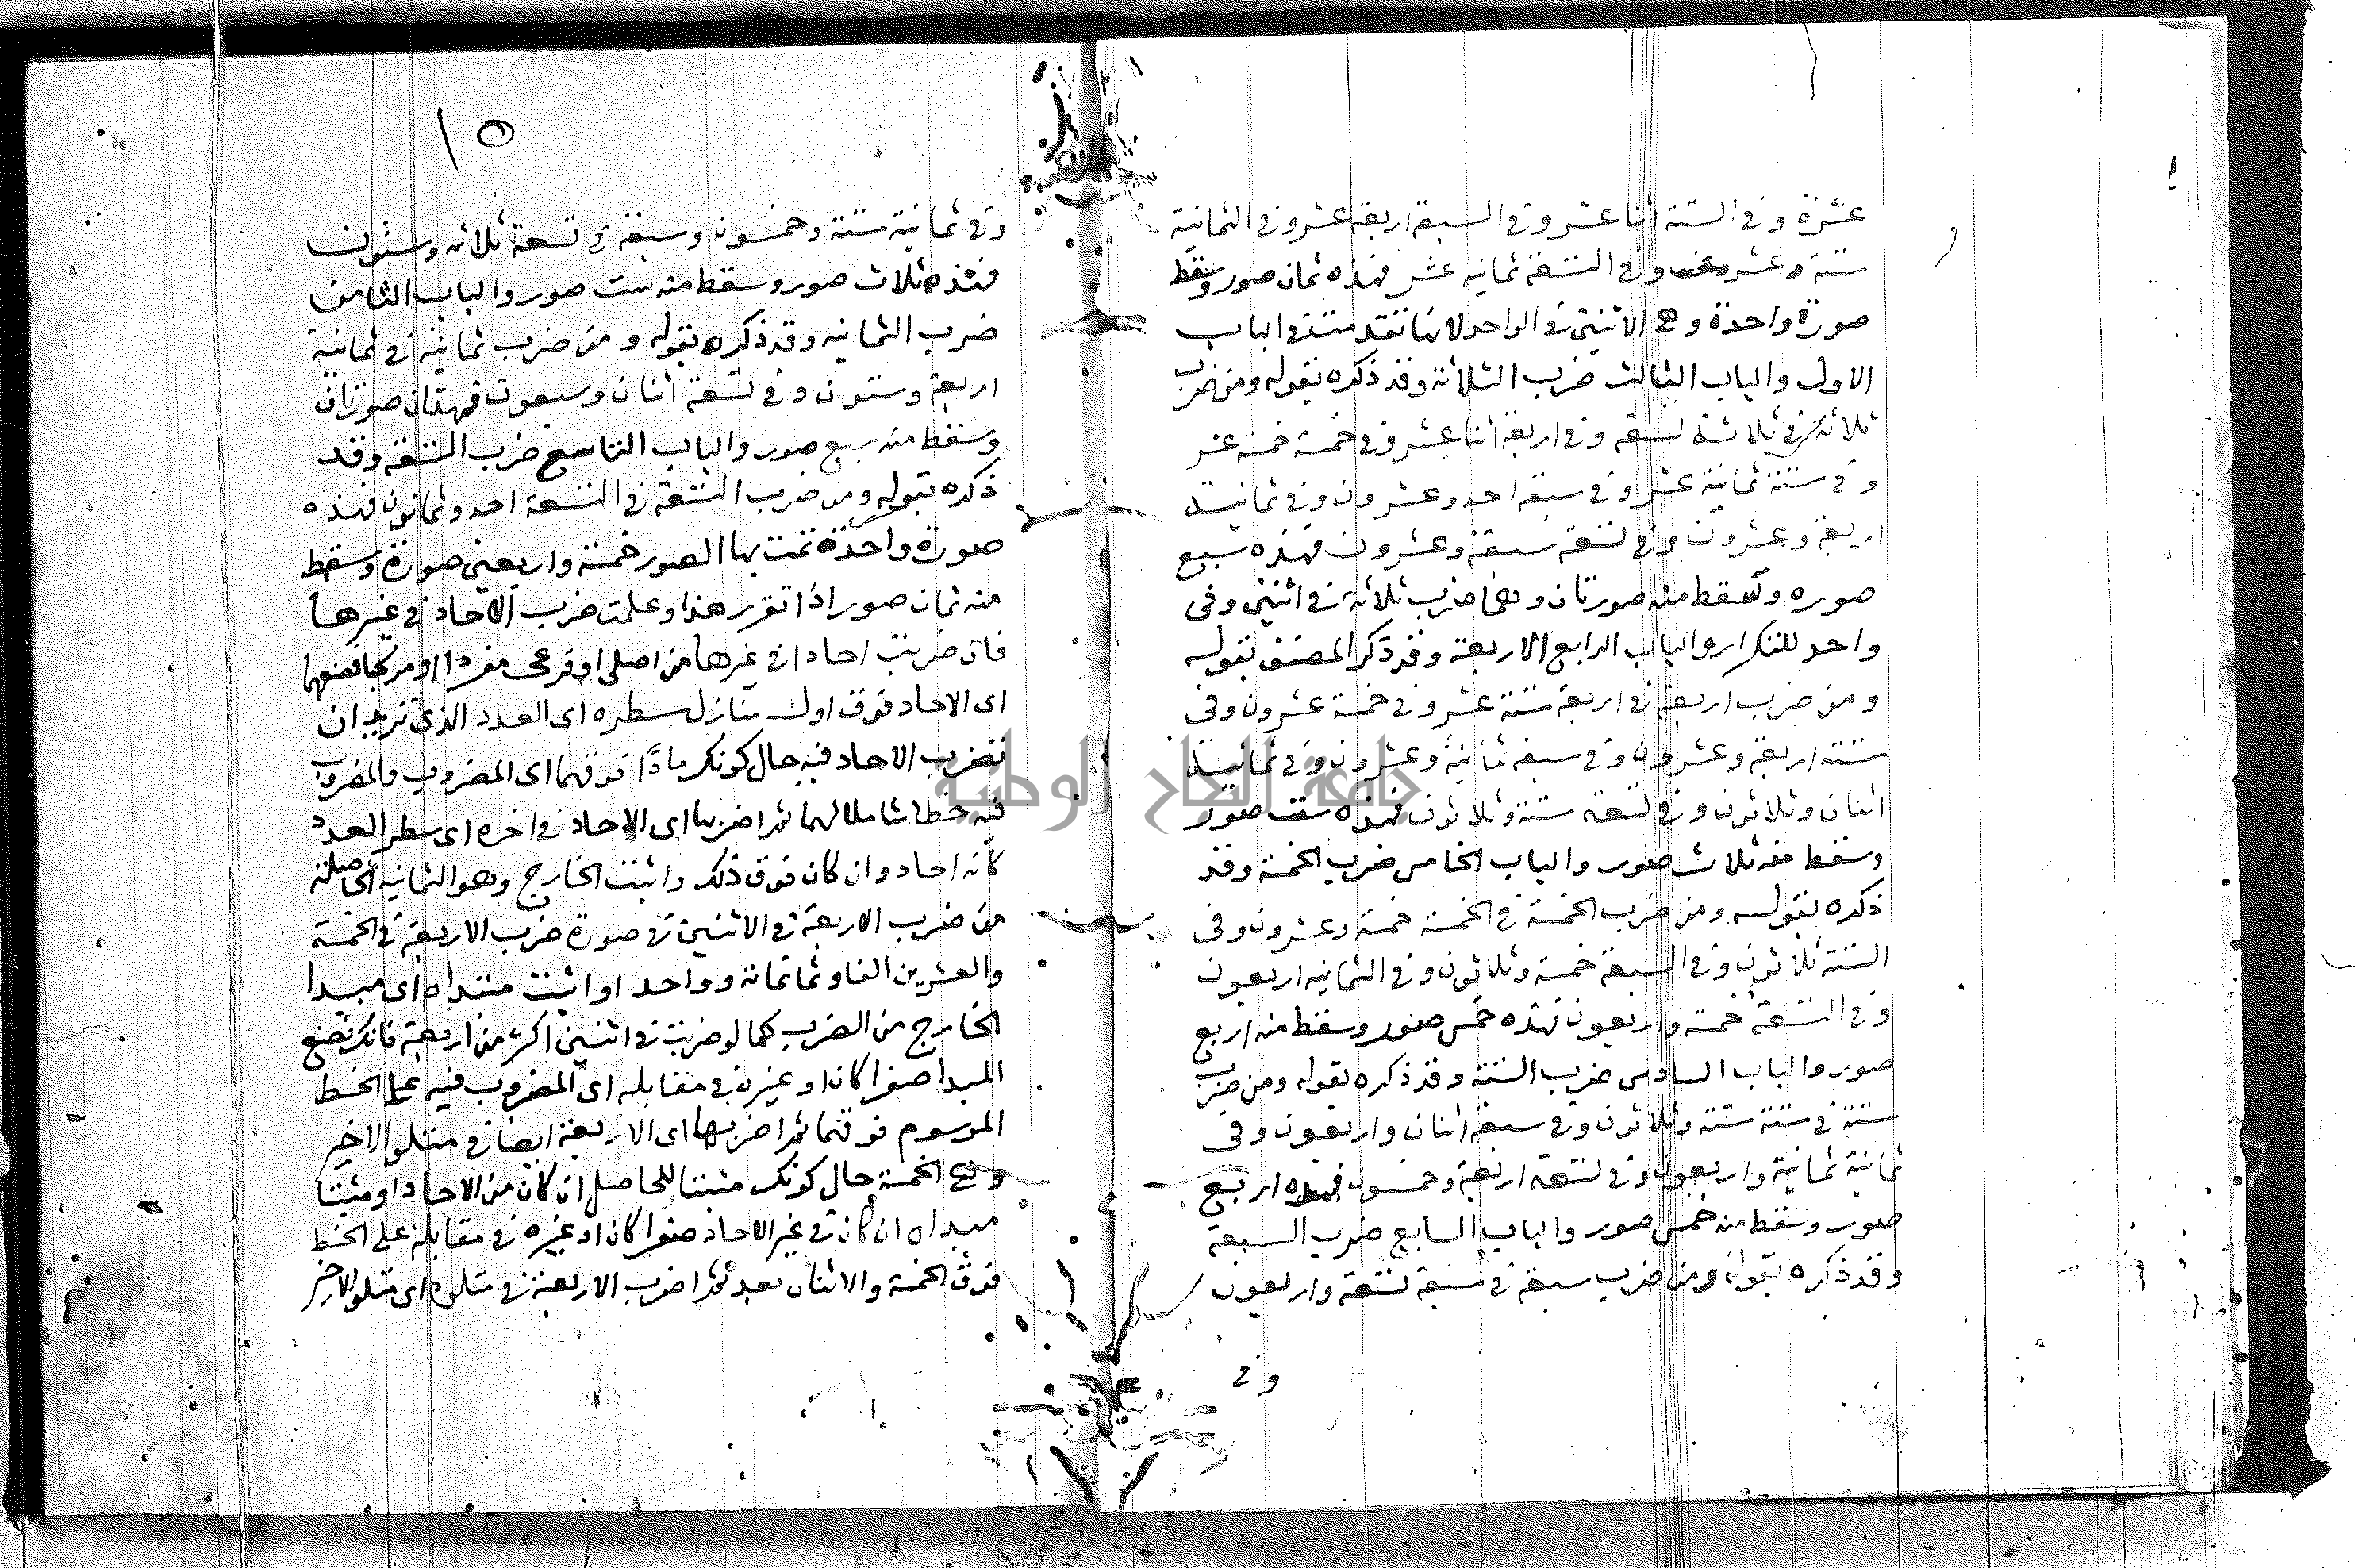 عشرة وفى الستة اثنا عشر وفى السبعة اربعة عشر وفى الثمانية
ستة وعشر وفى التسعة ثمانيه عشر فهذه ثمان صور وسقط
صورة واحدة وهى الاثنين فى الواحد لانها تقدمت فى الباب
الاول والباب الثالث ضرب الثلاثة وقد ذكره بقوله ومن ضرب
ثلاثة فى ثلاثة تسعة وفى اربعة اثنا عشر وفى خمسة خمسة عشر
وفى ستة ثمانية عشر وفى سبعة احد وعشرون وفى ثمانية
اربعة وعشرون وفى تسعة سبعة وعشرون فهذه سبع
صوره وسقط منه صورتان وهما ضرب ثلاثة فى اثنين وفى
واحد للتكرار والباب الرابع الاربعة وقد ذكر المصنف بقوله
ومن ضرب اربعة فى اربعة ستة عشر وفى خمسة عشرون وفى
ستة اربعة وعشرون وفى سبعة ثمانية وعشرون وفى ثمانية
اثنان وثلاثون وفى تسعة ستة وثلاثون فهذه ست صور
وسقط منه ثلاث صور والباب الخامس ضرب الخمسة وقد
ذكره بقوله ومن ضرب الخمسة فى الخمسة خمسة وعشرون وفى
الستة ثلاثون وفى السبعة خمسة وثلاثون وفى الثمانيه اربعون
وفى التسعة خمسة واربعون فهذه خمس صور وسقط منه اربع
صور والباب السادس ضرب الستة وقد ذكره بقوله ومن ضرب
ستة فى ستة ستة وثلاثون وفى سبعة اثنان واربعون وفى
ثمانية ثمانية واربعون وفى تسعة اربعة وخمسون فهذه اربع
صور وسقط منه خمس صور والباب السابع ضرب السبعة
وقد ذكره بقوله ومن ضرب سبعة فى سبعة تسعة واربعون
وفى
١٥
وفى ثمانية ستة وخمسون وسبعة فى تسعة ثلاثه وستون
فهذه ثلاث صور وسقط منه ست صور والباب الثامن
ضرب الثمانيه وقد ذكره بقوله ومن ضرب ثمانية فى ثمانية
اربعة وستون وفى تسعة اثنان وسبعون فهتان صورتان
وسقط منه سبع صور والباب التاسع ضرب التسعة وقد
ذكره بقوله ومن ضرب التسعة فى التسعة احد وثمانون فهذه
صورة واحدة تمت بها الصور خمسة واربعين صورة وسقط
منه ثمان صور اذا تقرر هذا وعلمت ضرب الاحاد فى غيرها
فان ضربت احادا فى غيرها من اصلى او فرعى مفردا او مركبا فضعهما
اى الاحاد فوق اول منازل سطره اى العدد الذى تريد ان
تضرب الاحاد فيه حال كونك مادًا فوقهما اى المضروب والمضروب
فيه خطا شاملا لهما ثم اضربها اى الاحاد فى اخره اى سطر العدد
كانه احاد وان كان فوق ذلك واثبت الخارج وهو الثمانيه الحاصلة
من ضرب الاربعة فى الاثنين فى صورة ضرب الاربعة فى الخمسة
والعشرين الفا وثمانمائة وواحد او اثبت مبتداه اى مبدا
الخارج من الضرب كما لو ضربت فى اثنين اكثر من اربعة فانك تضع
المبدا صفرا كان او غيره فى مقابله اى المضروب فيه على الخط
المرسوم فوقهما ثم اضربها اى الاربعة ايضا فى متلو الاخير
وهى الخمسة حال كونك مثبتا للحاصل ان كان من الاحاد او مثبتا
مبداه ان كان فى غير الاحاد صفرا كان او غيره فى مقابلة على الخط
فوق الخمسة والاثنان بعد ثم اضرب الاربعة فى متلوه اى متلو الاخير
جامعة النجاح الوطنية